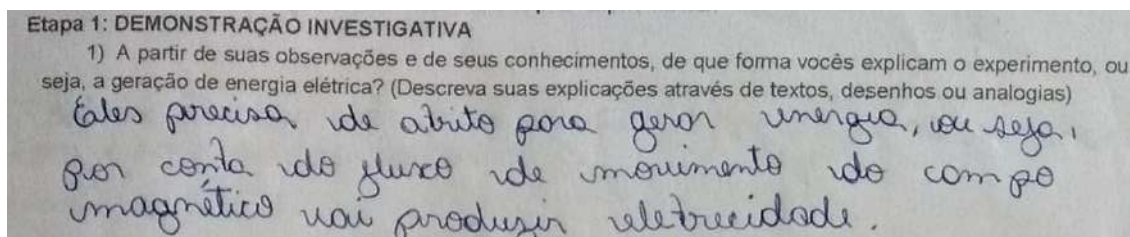 Etapa 1: DEMONSTRAÇÃO INVESTIGATIVA
1) A partir de suas observações e de seus conhecimentos, de que forma vocês explicam o experimento, ou
seja, a geração de energia elétrica? (Descreva suas explicações através de textos, desenhos ou analogias)
Eles precisa de atrito para gerar energia, ou seja,
por conta do fluxo de movimento do campo
magnético vai produzir eletrecidade.